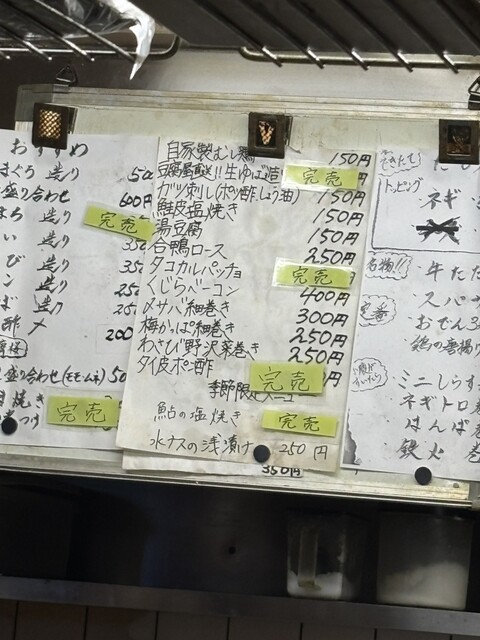 おすすめ
まぐろ 造り
盛り合わせ 600円
造り 完売
い 造り
び 造り
ン 造り
ば 造り
酢〆 200
盛り合わせ(モモ・ムネ) 50
焼き 完売
自家製むし鶏 150円
豆腐屋直送!!生ゆば造 完売
ガツ刺し(ポン酢、しょう油) 150円
鮭皮塩焼き 150円
湯豆腐 150円
合鴨ロース 250円
タコカルパッチョ 完売
くじらベーコン 400円
〆サバ細巻き 300円
梅かっぱ細巻き 250円
わさび野沢菜巻き 250円
タイ皮ポン酢 完売 円
季節限定メニュー
鮎の塩焼き 完売
水ナスの浅漬け 250円
350円
できたて!
トッピング
ネギ
名物!!
牛たた
定番
スパサ
おでん3
鶏の唐揚げ
ミニしらす
ネギトロ
はんぱ
鉄火 巻